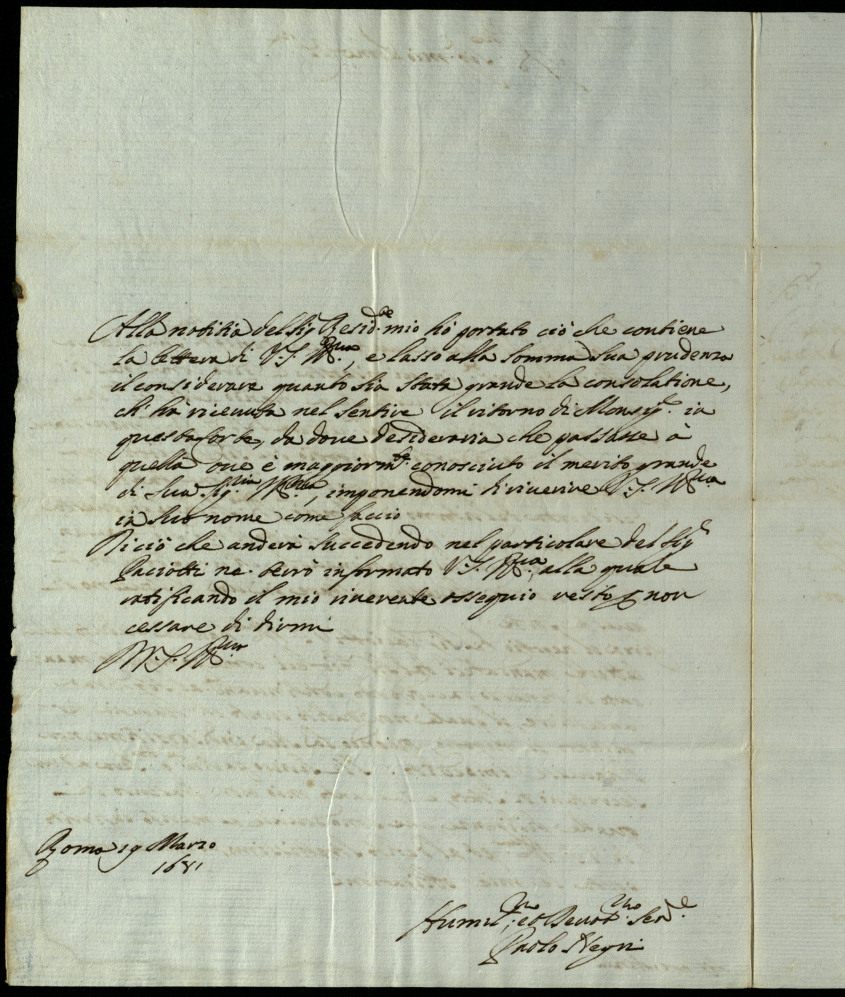 Alla notitia del Sig.r Resid.te mio hò portato ciò che contiene
la lettera di V.S. Ill.ma, e lasso alla somma sua prudenza
il considerare quanto sia stata grande la consolatione,
ch' hà ricevuta nel sentire il ritorno di Monsig.r in
questa Corte, da dove desideraria che passasse à
quella ove è maggiorm.te conosciuto il merito grande
di Sua Sig.ria Ill.ma, imponendomi di riverire V.S. Ill.ma
in suo nome come faccio
Di ciò che anderà succedendo nel particolare del Sig.r
Paciotti ne terrò informato V.S. Ill.ma, alla quale
ratificando il mio riverente ossequio resto p non
cessare di dirmi
D V.S. Ill.ma
Roma 19 Marzo
1681
Humil.mo et Devot.mo Ser.re
Paolo Negri